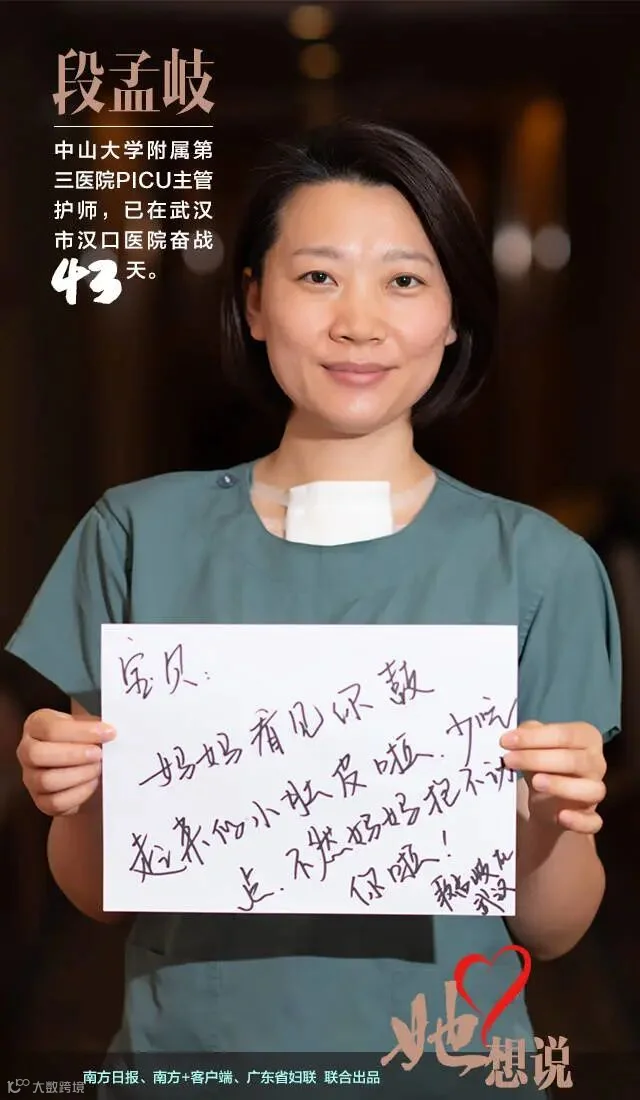 段孟岐
中山大学附属第
三医院PICU主管
护师，已在武汉
市汉口医院奋战
43天。
宝贝：
妈妈看见你鼓
起来的小肚皮啦，少吃
点，不然妈妈抱不动
你啦！
段孟岐于
武汉
她想说
南方日报、南方+客户端、广东省妇联 联合出品
大数跨境